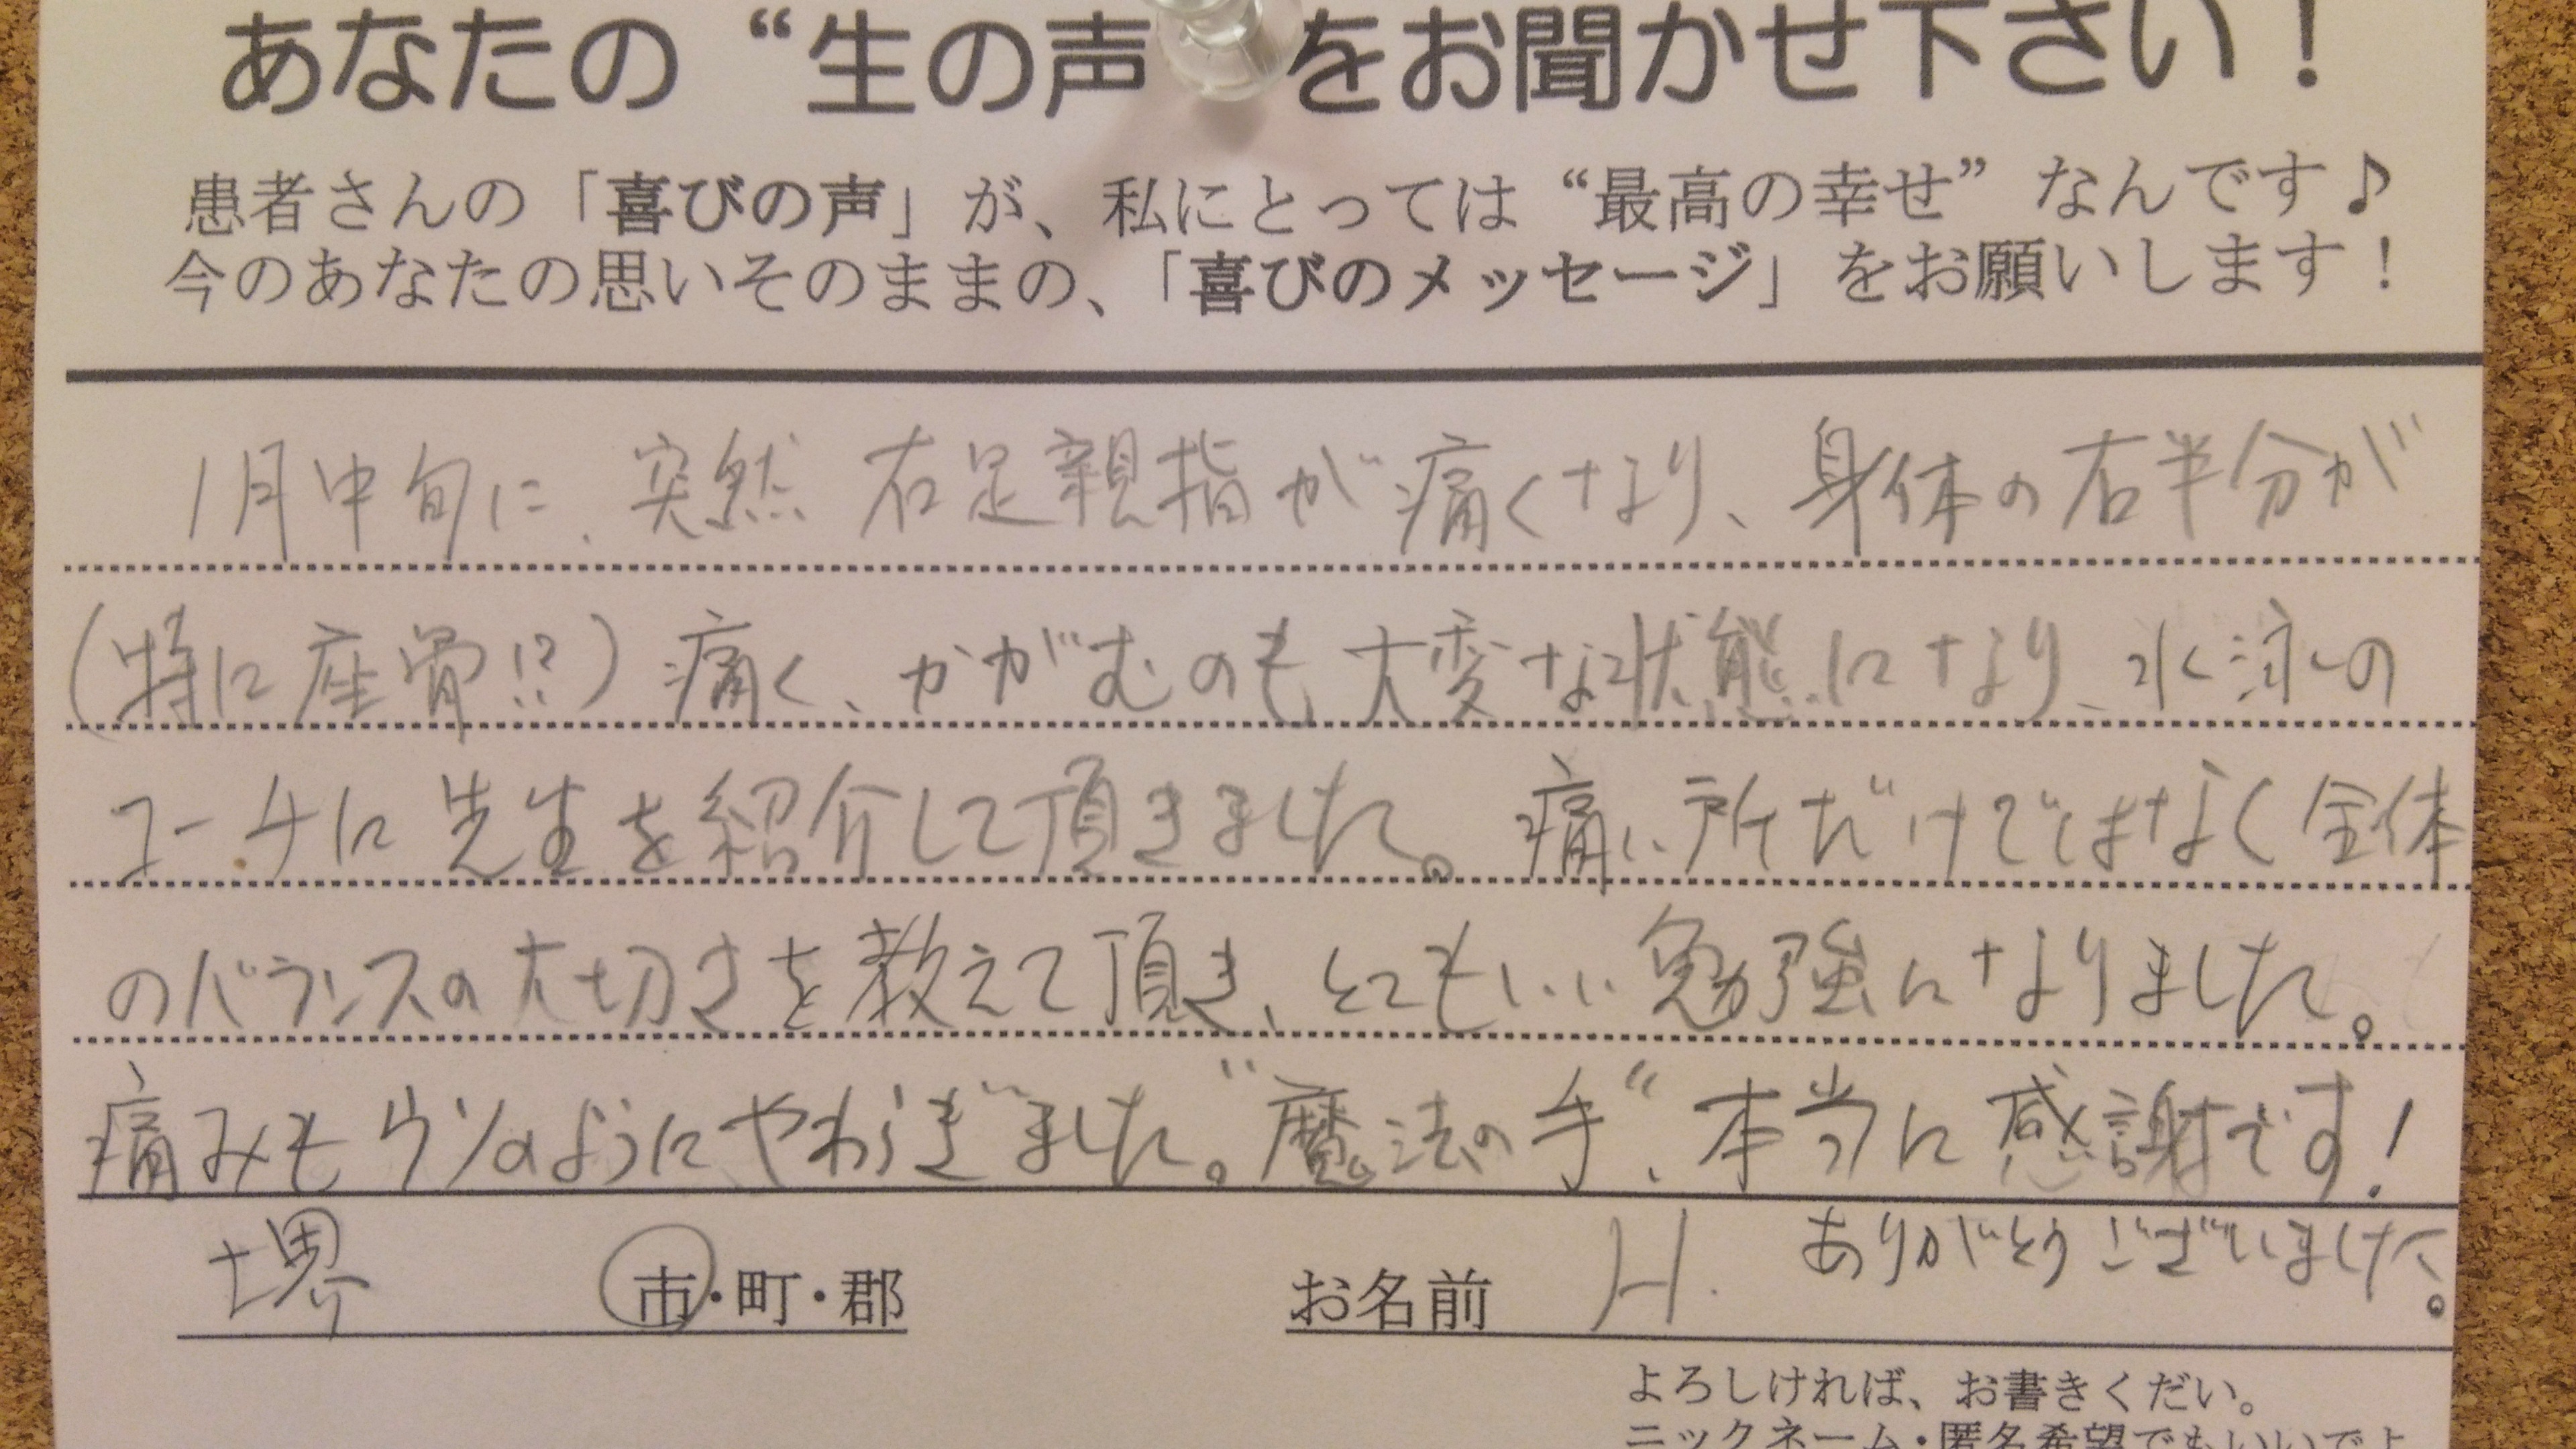 あなたの“生の声 をお聞かせ下さい！
患者さんの「喜びの声」が、私にとっては“最高の幸せ”なんです♪
今のあなたの思いそのままの、「喜びのメッセージ」をお願いします！
1月中旬に、突然 右足親指が痛くなり、身体の右半分が
(特に座骨!?)痛く、かがむのも大変な状態になり、水泳の
コーチに先生を紹介して頂きました。痛い所だけではなく全体
のバランスの大切さを教えて頂き、とてもいい勉強になりました。
痛みもウソのようにやわらぎました。“魔法の手“、本当に感謝です！
堺 市・町・郡 お名前 H. ありがとうございました。
よろしければ、お書きくだい。
ニックネーム・匿名希望でもいいでよ